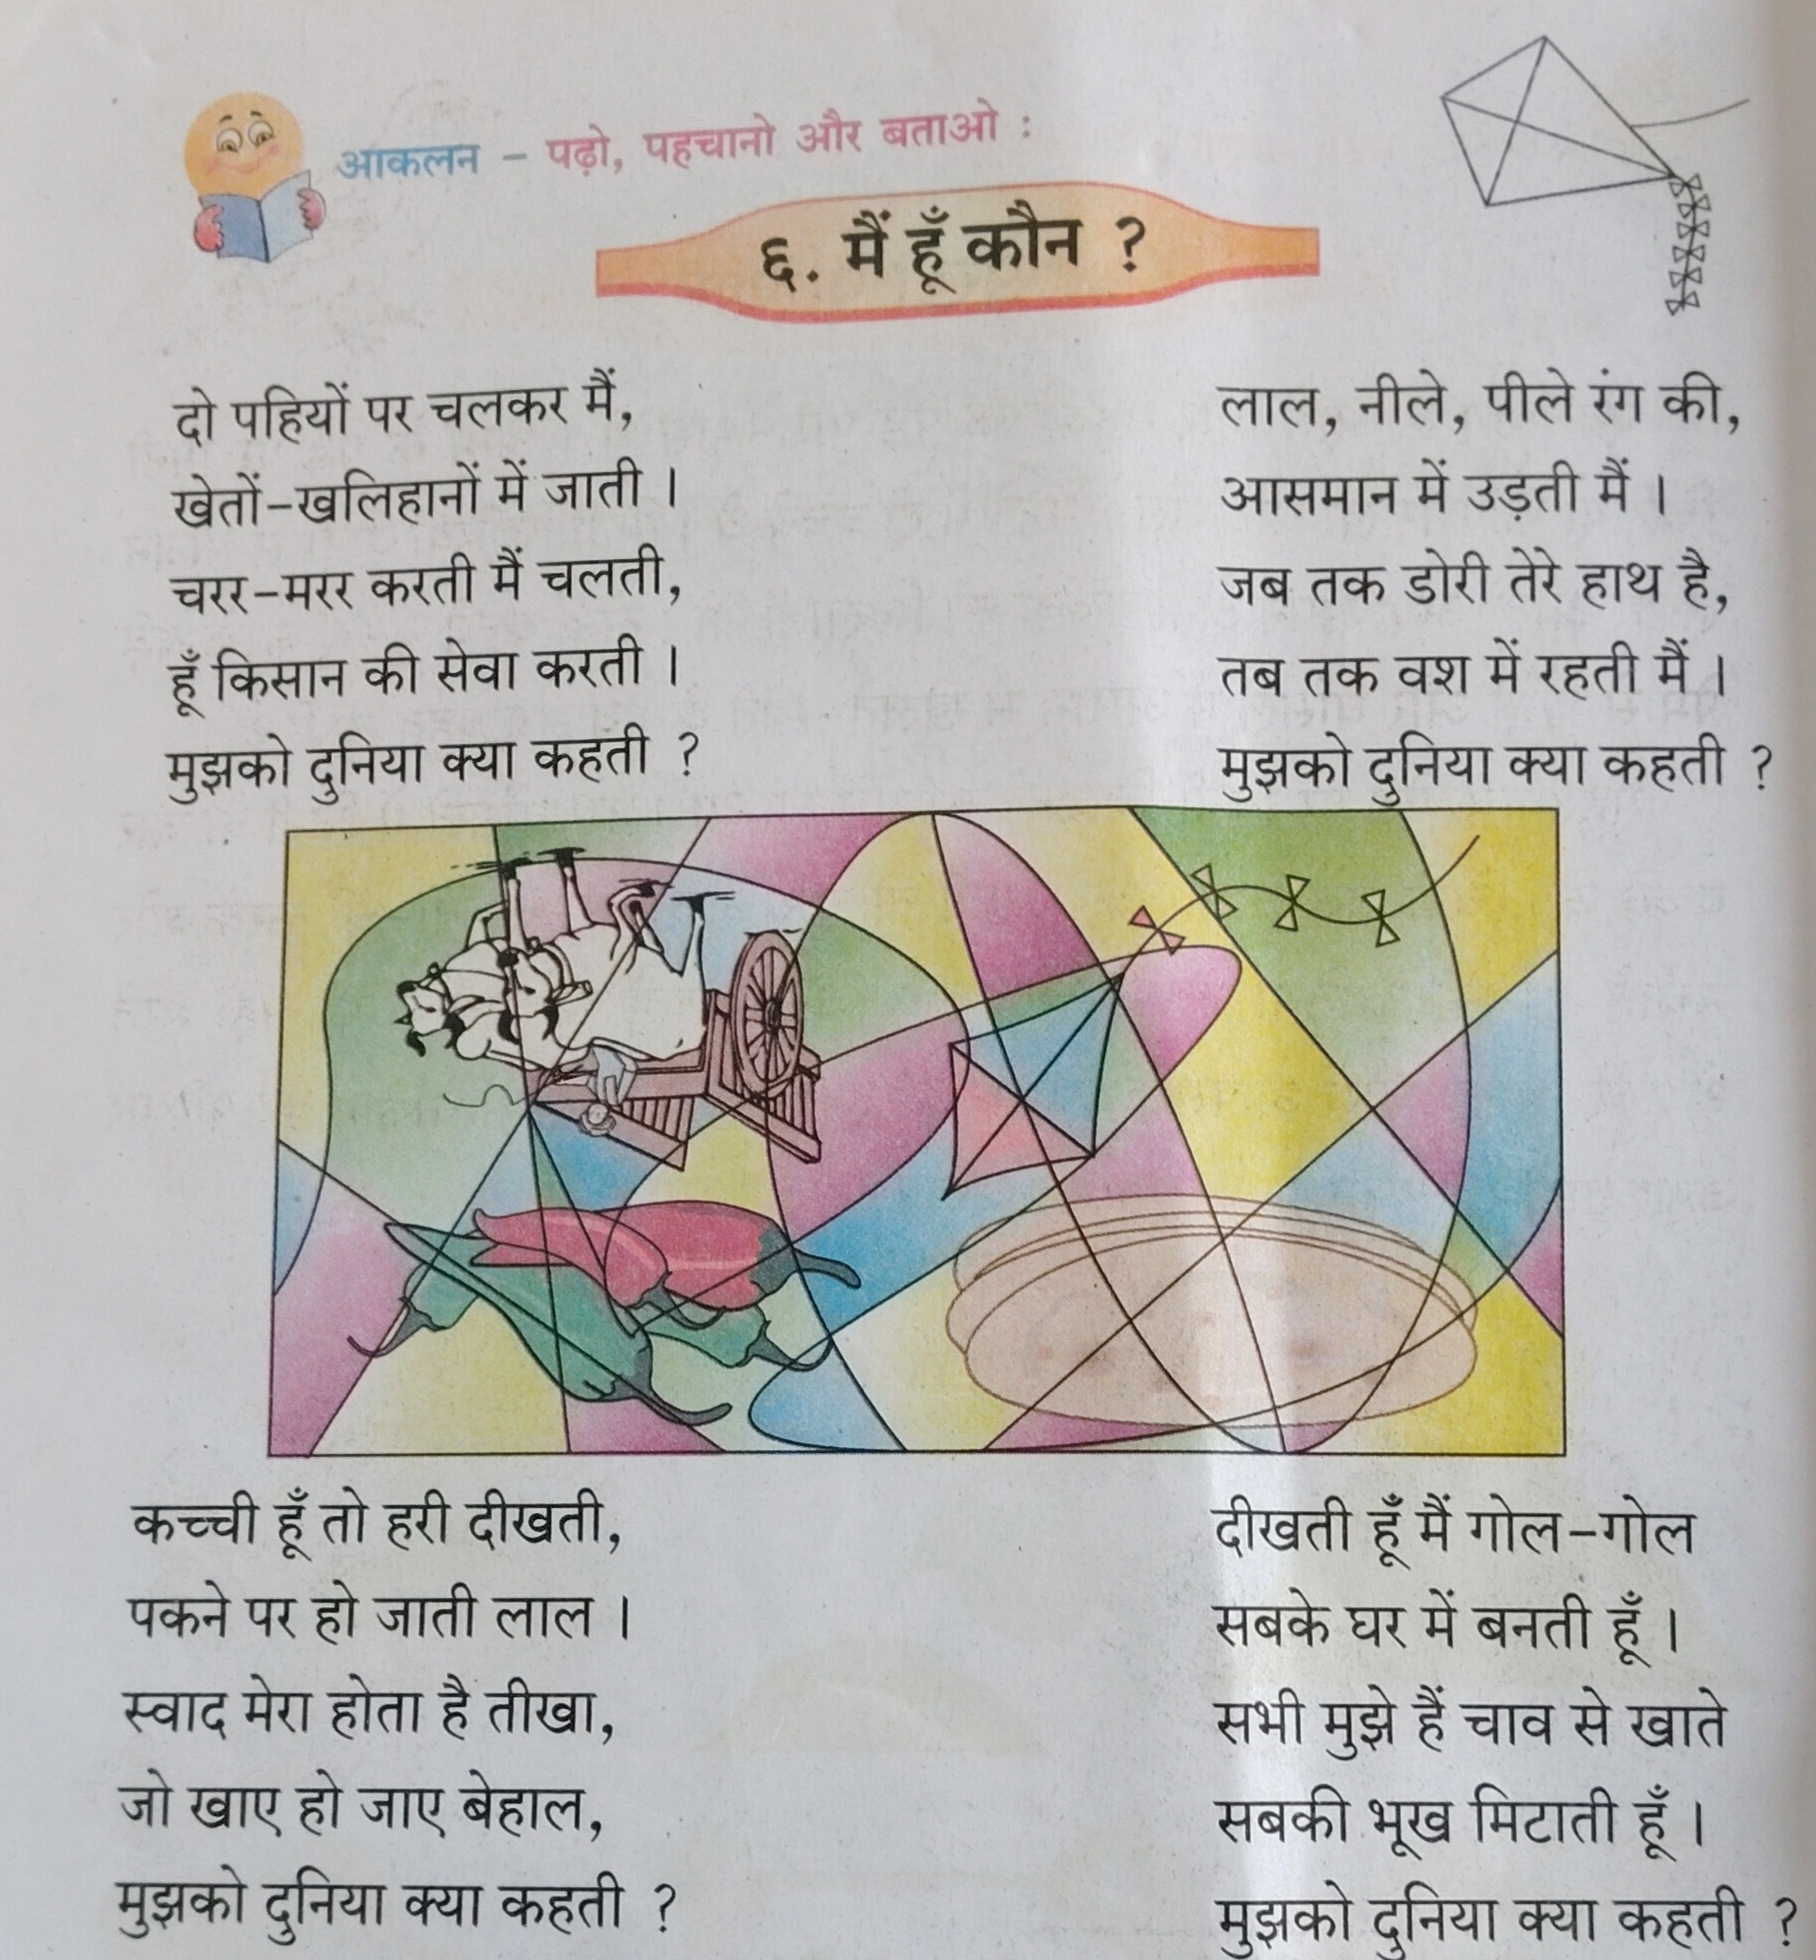 आकलन – पढ़ो, पहचानो और बताओ :
६. मैं हूँ कौन ?
दो पहियों पर चलकर मैं,
खेतों-खलिहानों में जाती ।
चरर-मरर करती मैं चलती,
हूँ किसान की सेवा करती ।
मुझको दुनिया क्या कहती ?
लाल, नीले, पीले रंग की,
आसमान में उड़ती मैं ।
जब तक डोरी तेरे हाथ है,
तब तक वश में रहती मैं ।
मुझको दुनिया क्या कहती ?
कच्ची हूँ तो हरी दीखती,
पकने पर हो जाती लाल ।
स्वाद मेरा होता है तीखा,
जो खाए हो जाए बेहाल,
मुझको दुनिया क्या कहती ?
दीखती हूँ मैं गोल-गोल
सबके घर में बनती हूँ ।
सभी मुझे हैं चाव से खाते
सबकी भूख मिटाती हूँ ।
मुझको दुनिया क्या कहती ?